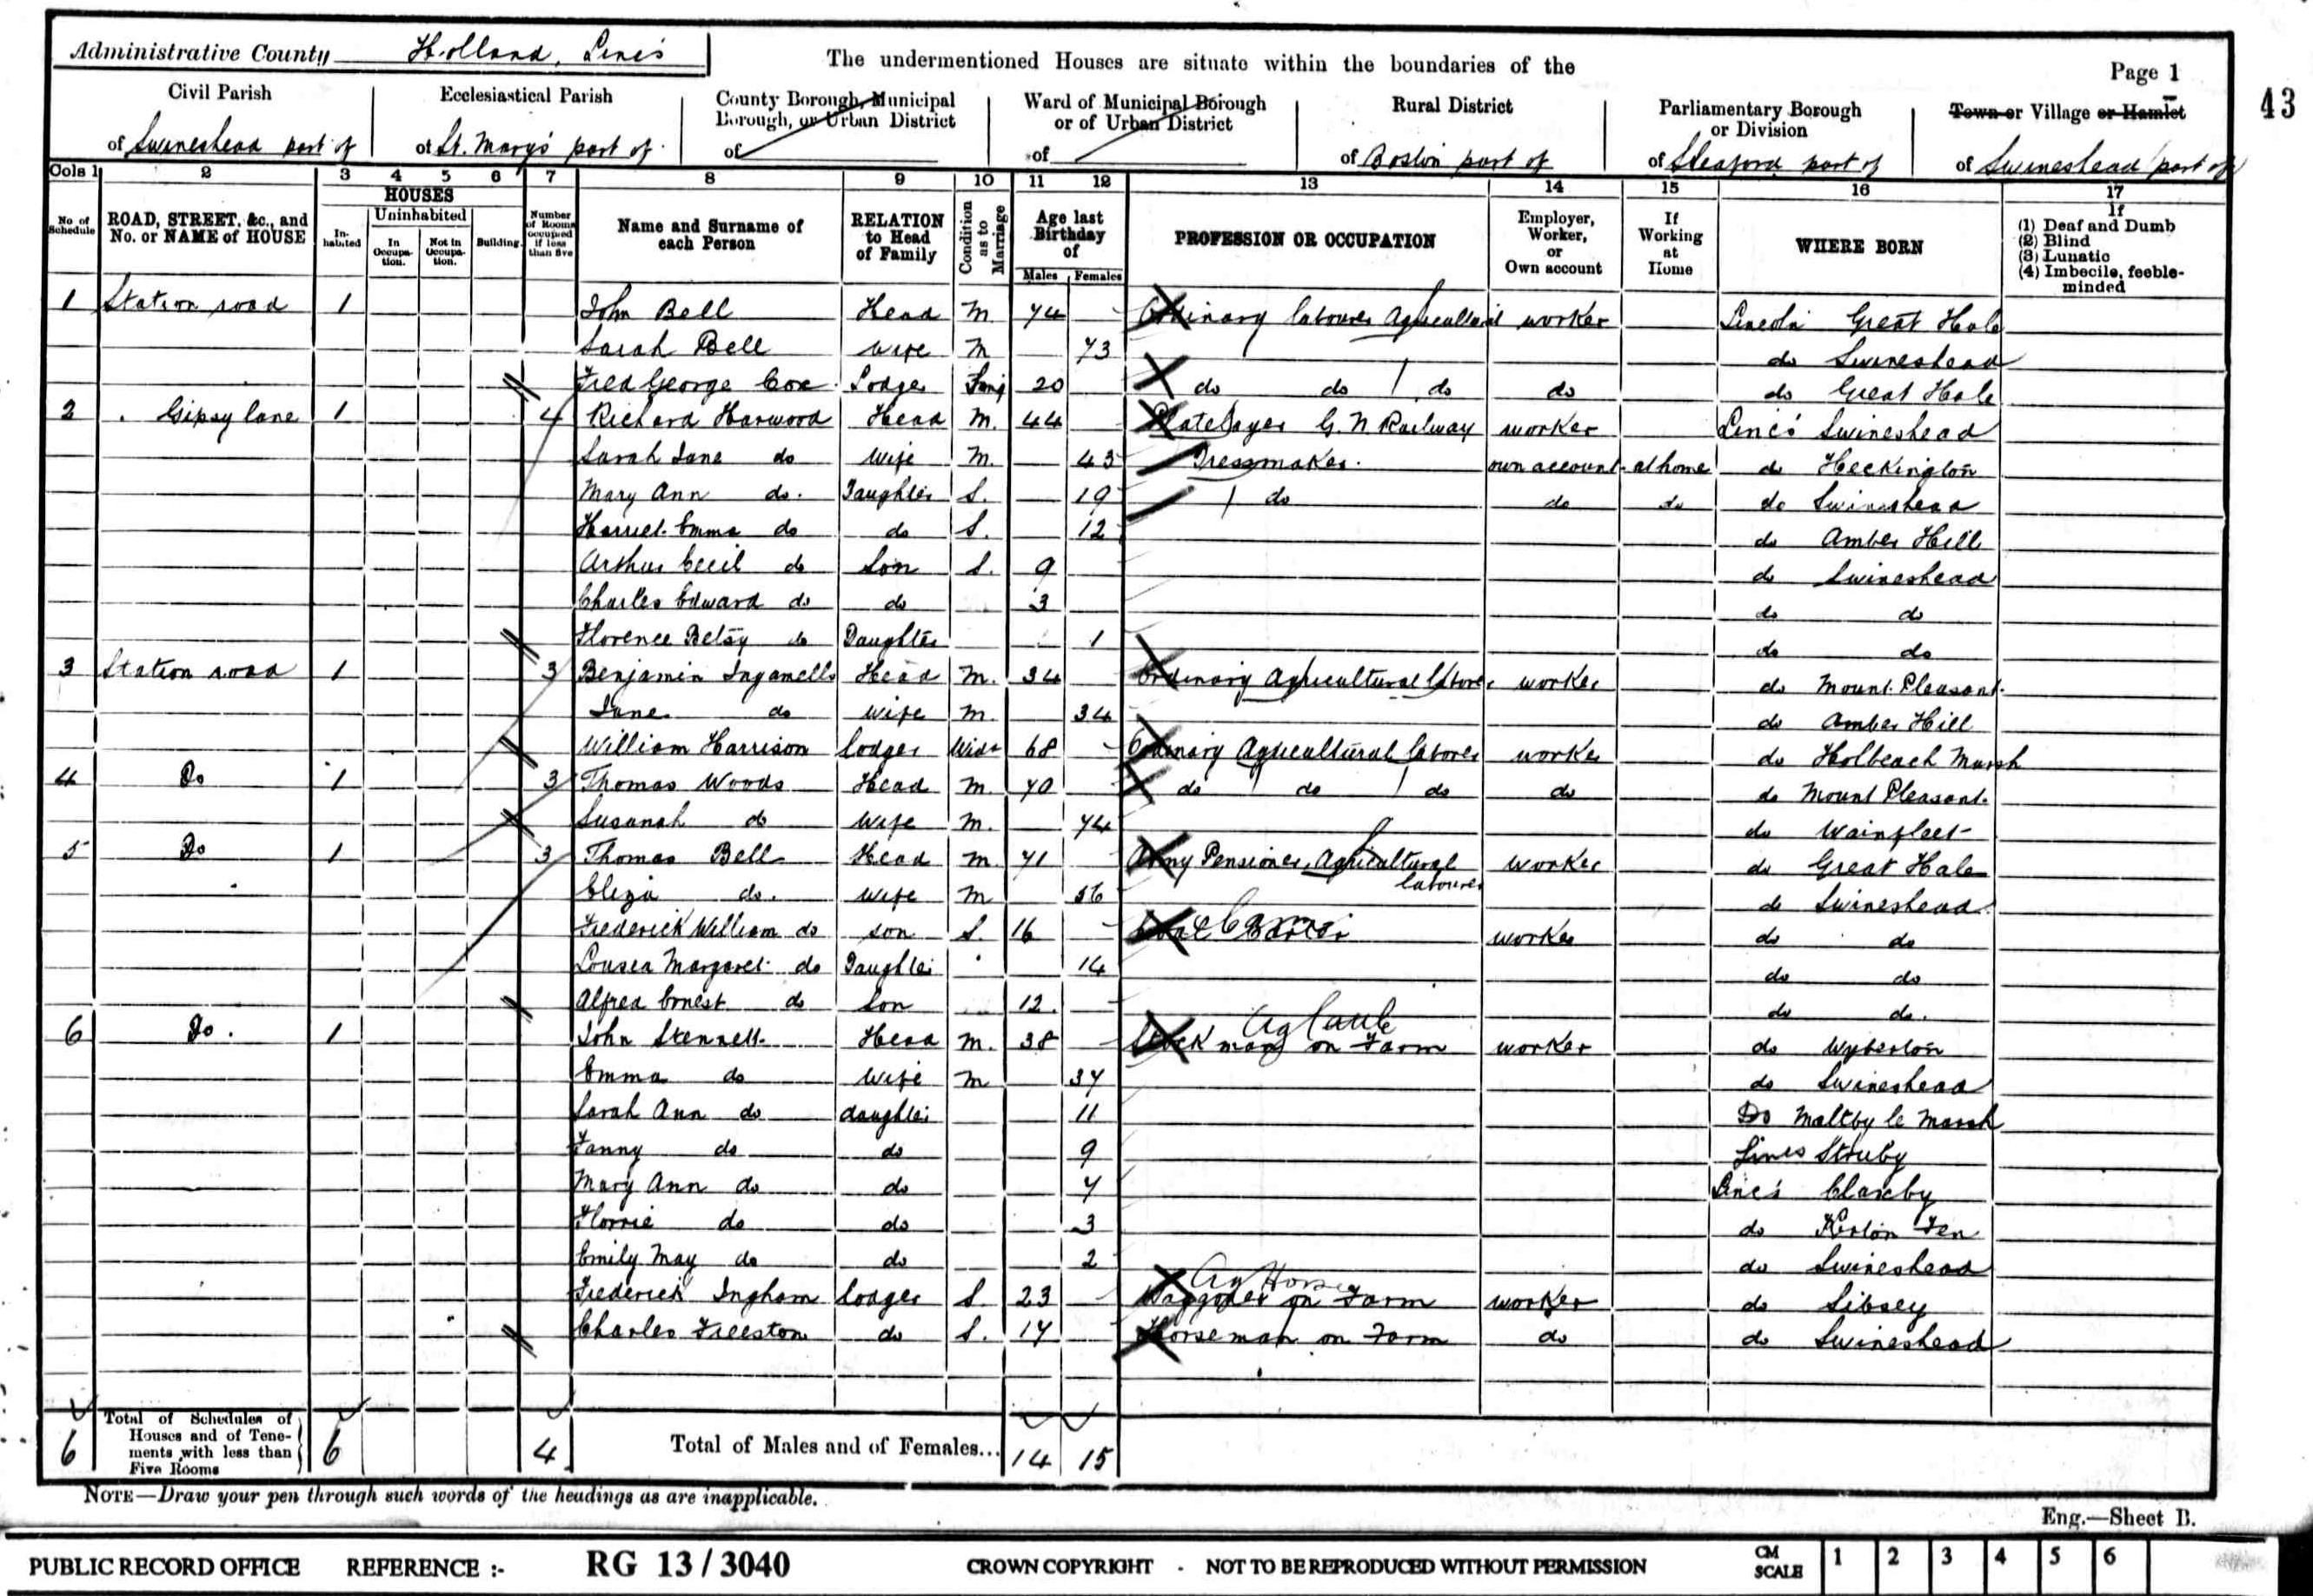 Administrative County Holland, Linc's
The undermentioned Houses are situate within the boundaries of the
Page 1
43
Civil Parish of Swineshead part of
Ecclesiastical Parish of St. Mary's part of
County Borough, Municipal Borough, or Urban District of
Ward of Municipal Borough or of Urban District of
Rural District of Boston part of
Parliamentary Borough or Division of Sleaford part of
Town or Village or Hamlet of Swineshead part of
Cols 1 2 3 4 5 6 7 8 9 10 11 12 13 14 15 16 17
No. of Schedule
ROAD, STREET, &c., and No. or NAME of HOUSE
HOUSES
Inhabited
Uninhabited
In Occupation.
Not in Occupation.
Building
Number of Rooms occupied if less than five
Name and Surname of each Person
RELATION to Head of Family
Condition as to Marriage
Age last Birthday of
Males Females
PROFESSION OR OCCUPATION
Employer, Worker, or Own account
If Working at Home
WHERE BORN
If
(1) Deaf and Dumb
(2) Blind
(3) Lunatic
(4) Imbecile, feeble-minded
1 Station road 1 John Bell Head M 74 Ordinary labourer Agricultural worker Lincoln Great Hale
Sarah Bell wife M 73 do Swineshead
Fred George Cox Lodger Sing 20 do do do do do Great Hale
2 Gipsy lane 1 4 Richard Harwood Head M. 44 Platelayer G. N. Railway worker Linc's Swineshead
Sarah Jane do wife M. 43 Dressmaker. own account at home do Heckington
Mary Ann do. Daughter S. 19 do do do do Swineshead
Harriet Emma do do S. 12 do Amber Hill
Arthur Cecil do Son S. 9 do Swineshead
Charles Edward do do 3 do do
Florence Betsy do Daughter 1 do do
3 Station road 1 3 Benjamin Ingamells Head M. 34 Ordinary Agricultural laborer worker do Mount Pleasant.
Jane do wife M. 34 do Amber Hill
William Harrison lodger Widr 68 Ordinary Agricultural laborer worker do Holbeach Marsh
4 Do 1 3 Thomas Woods Head M. 70 do do do do do Mount Pleasant.
Susanah do wife M. 74 do Wainfleet
5 Do 1 3 Thomas Bell Head M. 71 Army Pensioner, Agricultural labourer worker do Great Hale
Eliza do. wife M 56 do Swineshead
Frederick William do son S. 16 worker do do
Lousea Margaret do Daughter 14 do do
Alfred Ernest do Son 12. do do.
6 Do. 1 John Stennett Head M. 38 Stockman on Farm worker do Wyberton
Ag Cattle
Emma do wife M 37 do Swineshead
Sarah Ann do daughter 11 Do Maltby le Marsh
Fanny do do 9 Lincs Struby
Mary Ann do do 7 Linc's Claxby
Florrie do do 3 do Kirton Fen
Emily May do do 2 do Swineshead
Ag Horse
Frederick Ingham lodger S. 23 Waggoner on Farm worker do Sibsey
Charles Freeston do S. 17 Horseman on Farm do do Swineshead
6 Total of Schedules of Houses and of Tenements with less than Five Rooms 6 4 Total of Males and of Females... 14 15
NOTE—Draw your pen through such words of the headings as are inapplicable.
Eng.—Sheet B.
PUBLIC RECORD OFFICE REFERENCE :- RG 13/3040 CROWN COPYRIGHT - NOT TO BE REPRODUCED WITHOUT PERMISSION CM SCALE 1 2 3 4 5 6